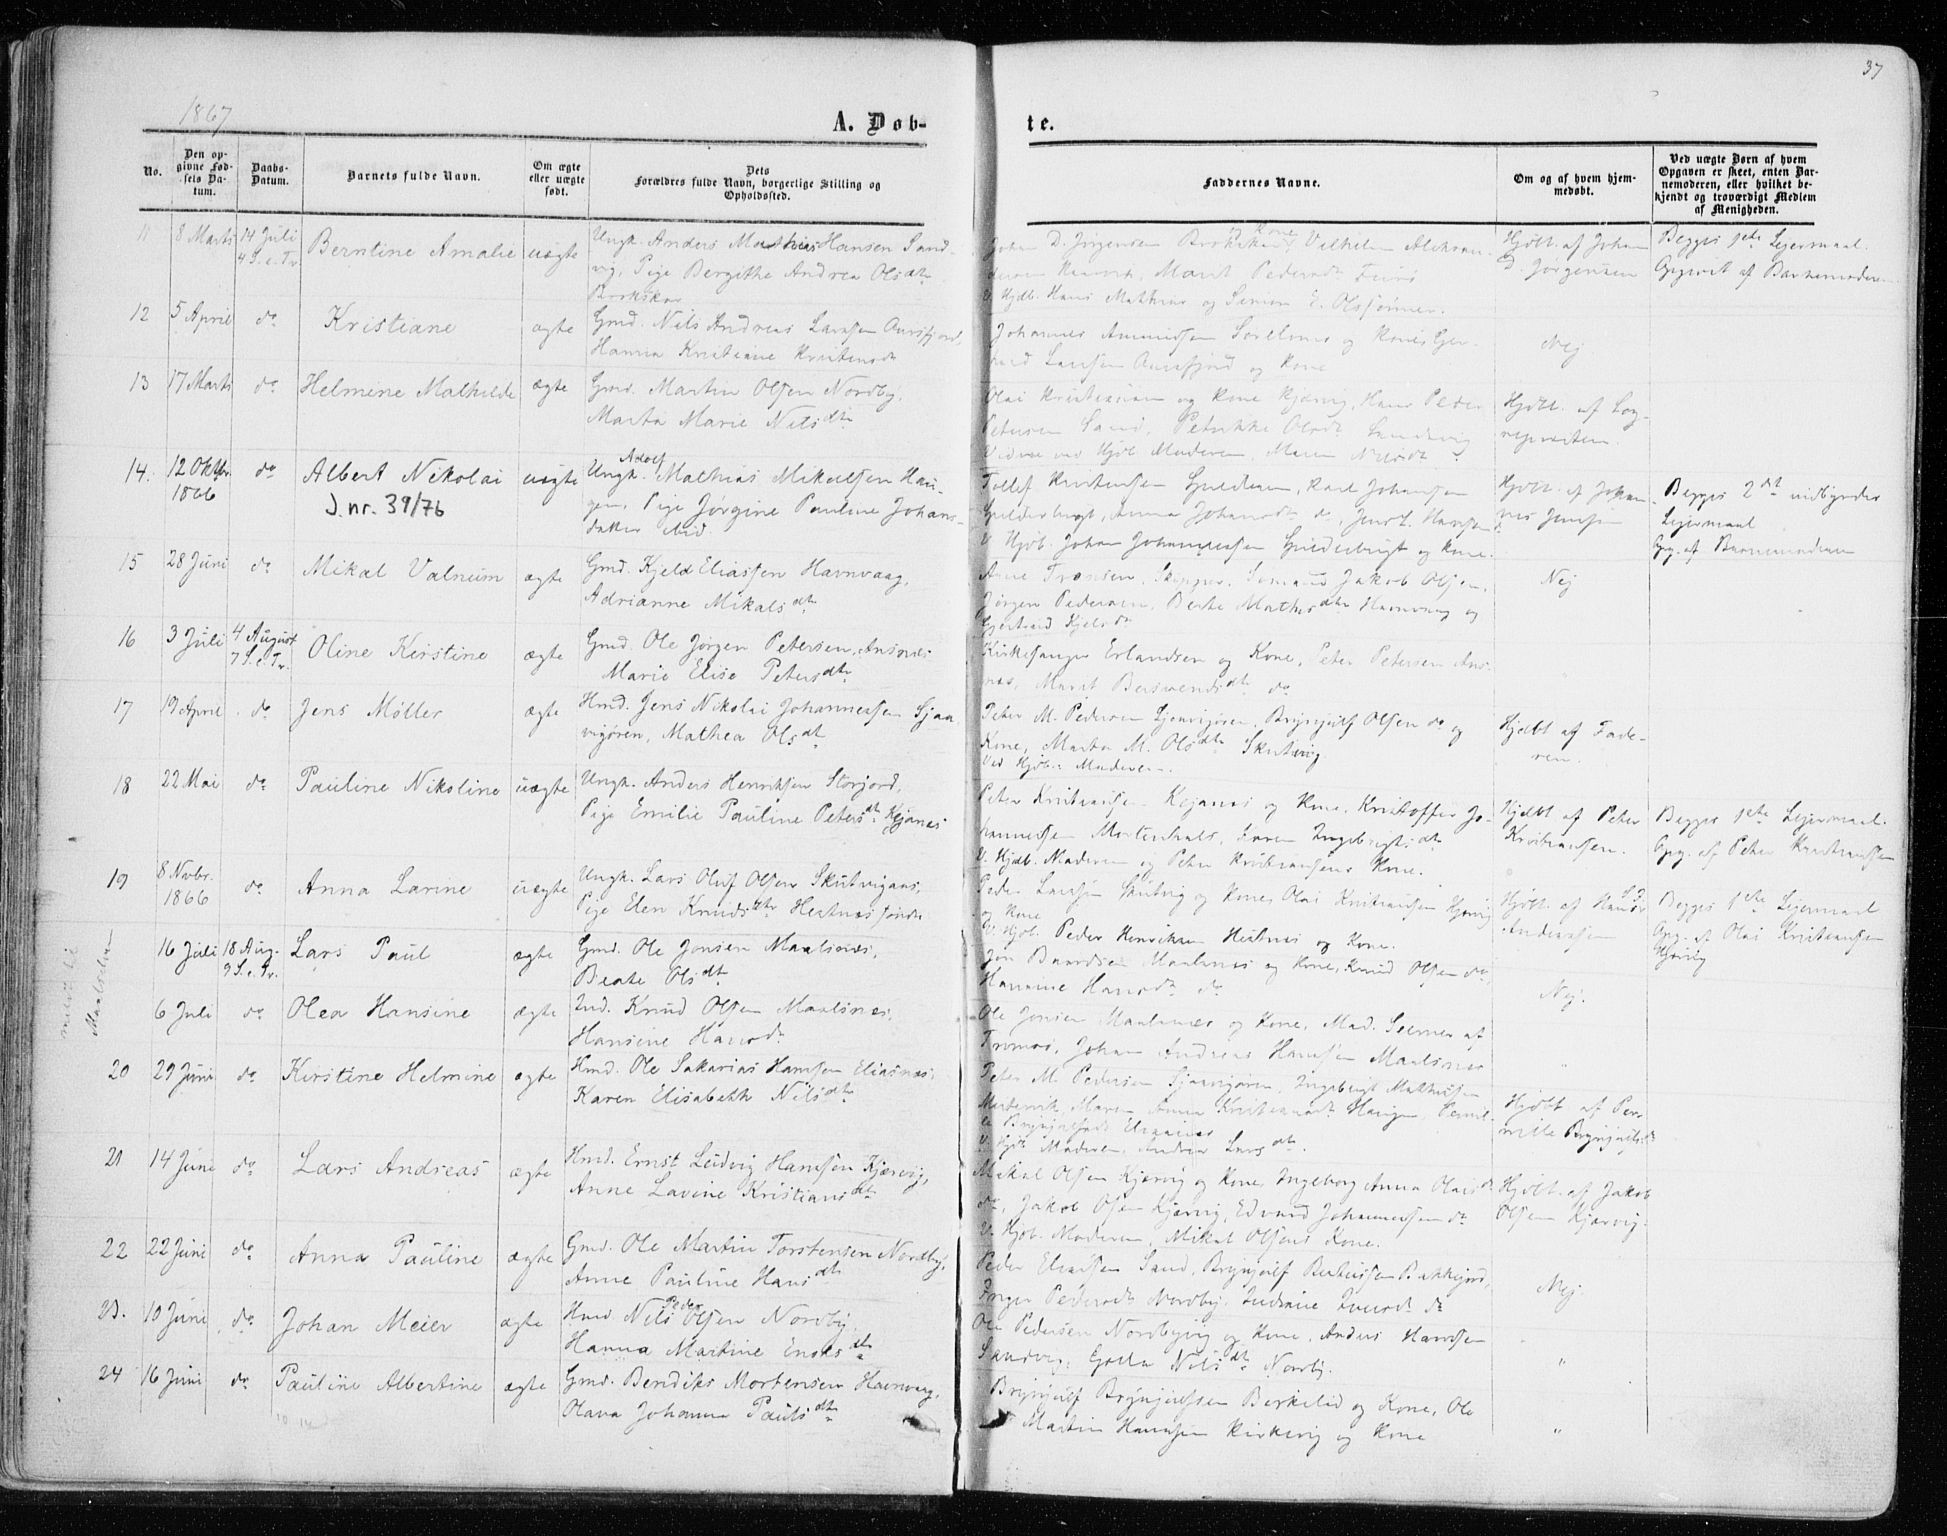 37
1867
A. Døb-
te.
No.
Den op-
givne Fød-
sels Da-
tum.
Daabs-
Datum.
Barnets fulde Navn.
Om ægte
eller uægte
født.
Dets
Forældres fulde Navn, borgerlige Stilling og
Opholdssted.
Faddernes Navne.
Om og af hvem hjem-
medøbt.
Ved uægte Børn af hvem
Opgaven er skeet, enten Bar-
nemoderen, eller hvilket be-
kjendt og troværdigt Medlem
af Menigheden.
11 8 Marts 14 Juli
4 S. e. Tr.
Berntine Amalie uægte
Ungk. Anders Mathias Hansen Sand-
vig, Pige Bergithe Andrea Olsdtr
Johan D. Jørgensen Vilhelm
Marit Pedersdt
V. Hjdb. Hans Mathias og Simon E. Olssønner.
Hjdbt. af Johan
D. Jørgensen
Begges 1ste Lejermaal.
Opgivet af Barnemoderen
12 5 April do Kristiane ægte
Gmd. Nils Andreas Larssen Aursfjord,
Hanna Kristiane Kristensdt
Johannes og Kone,
Larssen Aursfjord og Kone
Nej
13 17 Marts do Helmine Mathilde ægte
Gmd. Martin Olsen Nordby,
Marta Marie Nilsdtr
Olai Kristiansen og Kone Kjærvig, Hans Peder
Petersen Sand, Petrikke Olsdt Sandvig
Vidne ved Hjdb. Moderen, Maren Nilsdt
Hjdbt. af Sog-
nepræsten.
14. 12 Oktbr.
1866
do Albert Nikolai
J.nr. 39/76
uægte
Adolf
Ungk. Mathias Mikalsen Hau-
gen, Pige Jørgine Pauline Johans-
datter ibid.
Tollef Kristensen Karl Johansen
Gulderbugt, Anna Johansdt do,
V. Hjdb. Johan Johannessen Gulderbugt og Kone.
Hjdbt. af Johan-
nes Jensen
Begges 2det
Lejermaal
Opg. af Barnemoderen
15 28 Juni do Mikal Valnum ægte
Gmd. Kjeld Eliassen Havnvaag,
Adrianne Mikalsdtr
Arne Tronsen, Skipper, Jakob Olsen,
Jørgen Pedersen, Berte Mathisdtr Havnvaag og
Gjertrud Kjelsdt
Nej
16 3 Juli 4 August
7 S. e. Tr.
Oline Kirstine ægte
Gmd. Ole Jørgen Petersen, Ansnes
Marie Elise Petersdtr
Kirkesanger Erlandsen og Kone, Peter Petersen Ans-
nes, Marit Berntsdtr do
17 19 April do Jens Møller ægte
Hmd. Jens Nikolai Johannessen Sjaa-
vigøren, Mathea Olsdt
Peter M. Pedersen Sjaavigøren, Brynjulf Olsen do og
Kone, Marta M. Olsdtr Skutvig
Ved Hjdb.: Moderen.
Hjdbt af Fade-
ren.
18 22 Mai do Pauline Nikoline uægte
Ungk. Anders Henriksen Storjord,
Pige Emilie Pauline Petersdt, Kjønes
Peter Kristiansen og Kone, Kristoffer Jo-
hannessen Mortenhals, Karen Ingebrigtsdtr
V. Hjdb. Moderen og Peter Kristiansens Kone.
Hjdbt af Peter
Kristiansen.
Begges 1ste Lejermaal.
Opg. af Peter Kristiansen
19 8 Novbr.
1866
do Anna Larine uægte
Ungk. Lars Oluf Olsen Skutvigaas,
Pige Elen Knudsdtr
Peder Larssen Skutvig og Kone, Olai Kristiansen Kjærvig
og Kone
V. Hjdb. Peder Henriksen og Kone.
Hjdbt. af Hans
Andreassen
Begges 1ste Lejermaal
Opg. af Olai Kristiansen
Kjærvig
Maalselv
16 Juli 18 Aug.
9 S. e. Tr.
Lars Paul ægte
Gmd. Ole Jonsen Maalsnæs,
Beate Olsdt
Jon Baardsen Maalsnæs og Kone, Knud Olsen do,
Hansine Hansdt do
Nej.
6 Juli do Olea Hansine ægte
Ind. Knud Olsen Maalsnæs,
Hansine Hansdt
Ole Jonsen Maalsnæs og Kone, Mad. Selmer af
Tromsø, Johan Andreas Hanssen Maalsnæs
20 29 Juni do Kirstine Helmine ægte
Hmd. Ole Sakarias Hanssen Eliasnæs,
Karen Elisabeth Nilsdtr
Peter M. Pedersen Sjaavigøren, Ingebrigt Mathissen
Maren Anna Kristiansdt Haugen,
V. Hjdb. Moderen, Andrea Larsdt.
Hjdbt af Per-
nille Brynjulfsdt
21 14 Juni do Lars Andreas ægte
Hmd. Ernst Ludvig Hanssen Kjærvig,
Anne Lavine Kristiansdtr
Mikal Olsen Kjærvig og Kone, Ingeborg Anna Olaisdt
do, Jakob Olsen Kjærvig, Edvard Johannessen do
V. Hjdb. Moderen, Mikal Olsens Kone.
Hjdbt. af Jakob
Olsen Kjærvig.
22 22 Juni do Anna Pauline ægte
Gmd. Ole Martin Torstensen Nordby,
Anne Pauline Hansdtr
Peder Eliassen Sand, Brynjulf Berthussen Bakkejord,
Inger Pedersdt Nordby, do
Nej.
23. 10 Juni do Johan Meier ægte
Peder
Hmd Nils Olsen Nordby,
Hanna Martine Enoksdtr
Ole Pedersen Nordbyvig og Kone, Anders Hanssen
Sandvig, Golla Nilsdtr Nordby.
"
24 16 Juni do Pauline Albertine ægte
Gmd. Bendiks Mortensen Havnvaag,
Olava Johanna Paulsdtr
Brynjulf Brynjulfsen Berkelid og Kone, Ole
Martin Hanssen Kirkevig og Kone
"